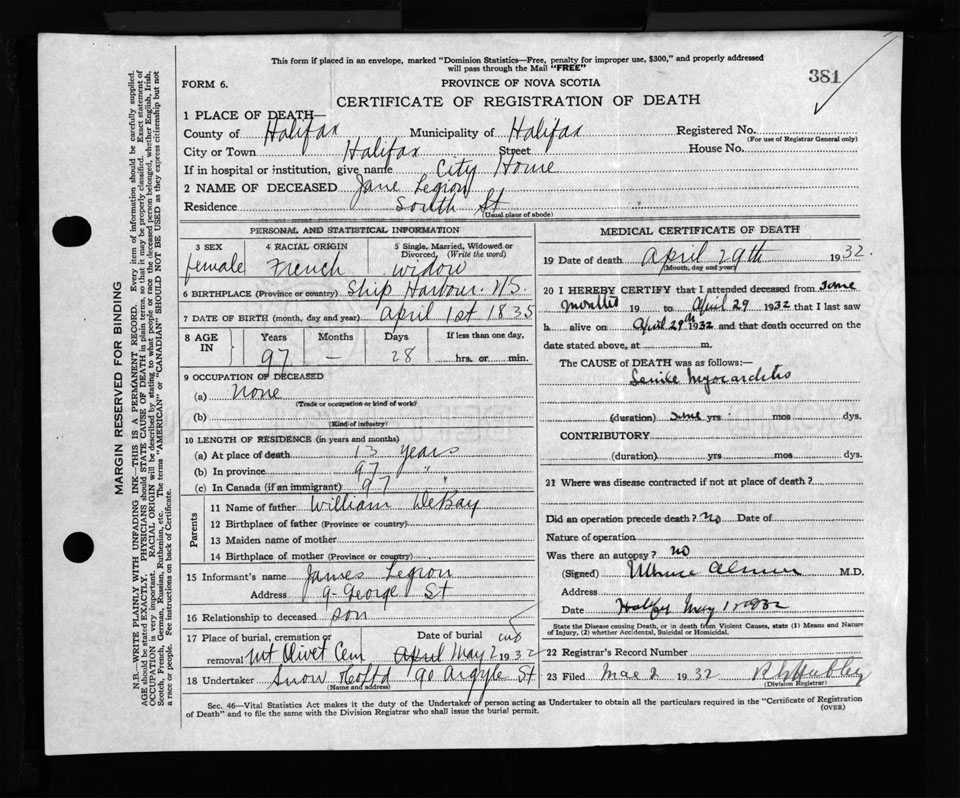 This form if placed in an envelope, marked "Dominion Statistics—Free, penalty for improper use, $300," and properly addressed
will pass through the Mail "FREE"
381
FORM 6.
PROVINCE OF NOVA SCOTIA
CERTIFICATE OF REGISTRATION OF DEATH
1 PLACE OF DEATH—
County of Halifax Municipality of Halifax Registered No.
(For use of Registrar General only)
City or Town Halifax Street House No.
If in hospital or institution, give name City Home
2 NAME OF DECEASED Jane Legion
Residence South St
(Usual place of abode)
PERSONAL AND STATISTICAL INFORMATION
3 SEX female
4 RACIAL ORIGIN French
5 Single, Married, Widowed or
Divorced, (Write the word)
widow
6 BIRTHPLACE (Province or country) Ship Harbour. N.S.
7 DATE OF BIRTH (month, day and year) April 1st 1835
8 AGE IN
Years Months Days If less than one day,
97 — 28 hrs. or min.
9 OCCUPATION OF DECEASED
(a) None
(Trade or occupation or kind of work)
(b)
(Kind of industry)
10 LENGTH OF RESIDENCE (in years and months)
(a) At place of death 13 years
(b) In province 97 "
(c) In Canada (if an immigrant) 97
Parents
11 Name of father William DeBay
12 Birthplace of father (Province or country)
13 Maiden name of mother
14 Birthplace of mother (Province or country)
15 Informant's name James Legion
Address 9- George St
16 Relationship to deceased son
17 Place of burial, cremation or Date of burial
removal Mt Olivet Cem April May 2 1932
18 Undertaker Snow 90 Argyle St
(Name and address)
MEDICAL CERTIFICATE OF DEATH
19 Date of death April 29th 1932.
(Month, day and year)
20 I HEREBY CERTIFY that I attended deceased from some
months 19 to April 29 1932 that I last saw
h alive on April 29th 1932 and that death occurred on the
date stated above, at m.
The CAUSE of DEATH was as follows:—
Senile Myocarditis
(duration) some yrs mos dys.
CONTRIBUTORY
(duration) yrs mos dys.
21 Where was disease contracted if not at place of death?
Did an operation precede death? no Date of
Nature of operation
Was there an autopsy? no
(Signed) M.D.
Address
Date Halfx May 1 1932
State the Disease causing Death, or in death from Violent Causes, state (1) Means and Nature
of Injury, (2) whether Accidental, Suicidal or Homicidal.
22 Registrar's Record Number
23 Filed 2 1932
(Division Registrar)
Sec. 46—Vital Statistics Act makes it the duty of the Undertaker or person acting as Undertaker to obtain all the particulars required in the "Certificate of Registration
of Death" and to file the same with the Division Registrar who shall issue the burial permit.
(OVER)
MARGIN RESERVED FOR BINDING
N.B.—WRITE PLAINLY WITH UNFADING INK—THIS IS A PERMANENT RECORD. Every item of information should be carefully supplied.
AGE should be stated EXACTLY. PHYSICIANS should STATE CAUSE OF DEATH in plain terms, so that it may be properly classified. Exact statement of
OCCUPATION is very important. RACIAL ORIGIN will be described by stating to what people or race the deceased person belonged, whether English, Irish,
Scotch, French, German, Russian, Ruthenian, etc. The terms "AMERICAN" or "CANADIAN" SHOULD NOT BE USED as they express citizenship but not
a race or people. See instructions on back of Certificate.